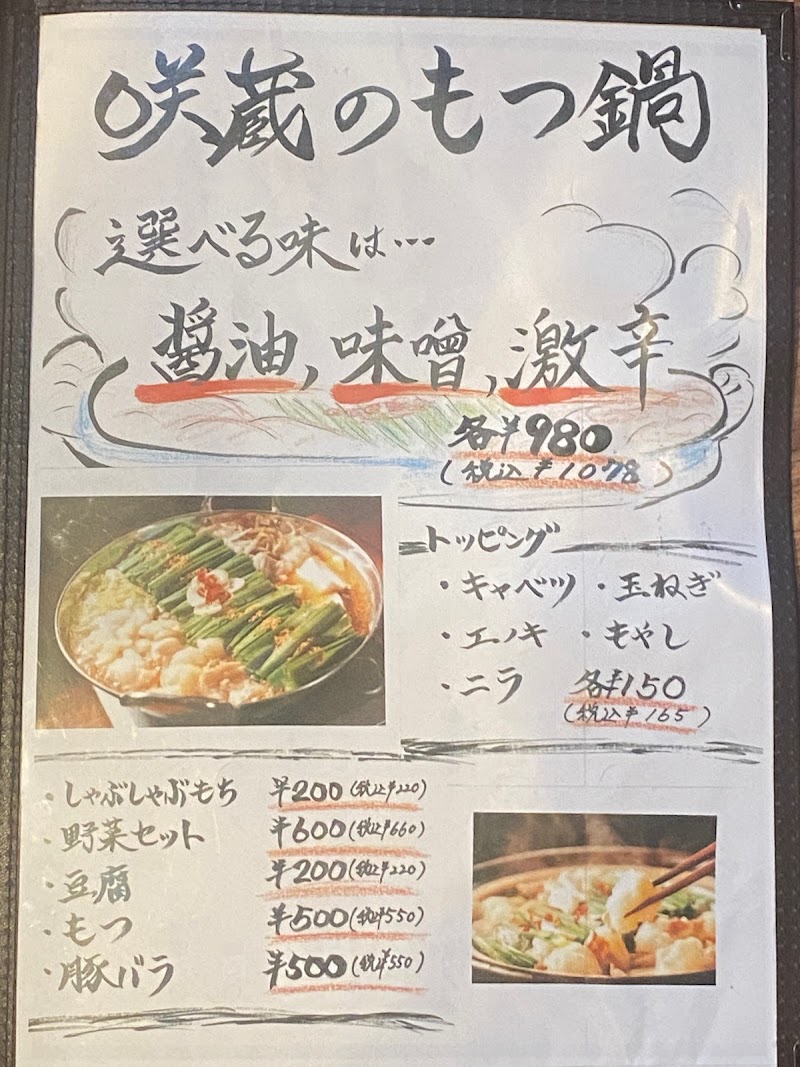 咲蔵のもつ鍋
選べる味は…
醤油,味噌,激辛
各¥980
(税込¥1078)
トッピング
・キャベツ ・玉ねぎ
・エノキ ・もやし
・ニラ 各¥150
(税込¥165)
・しゃぶしゃぶもち ¥200(税込¥220)
・野菜セット ¥600(税込¥660)
・豆腐 ¥200(税込¥220)
・もつ ¥500(税込¥550)
・豚バラ ¥500(税込¥550)